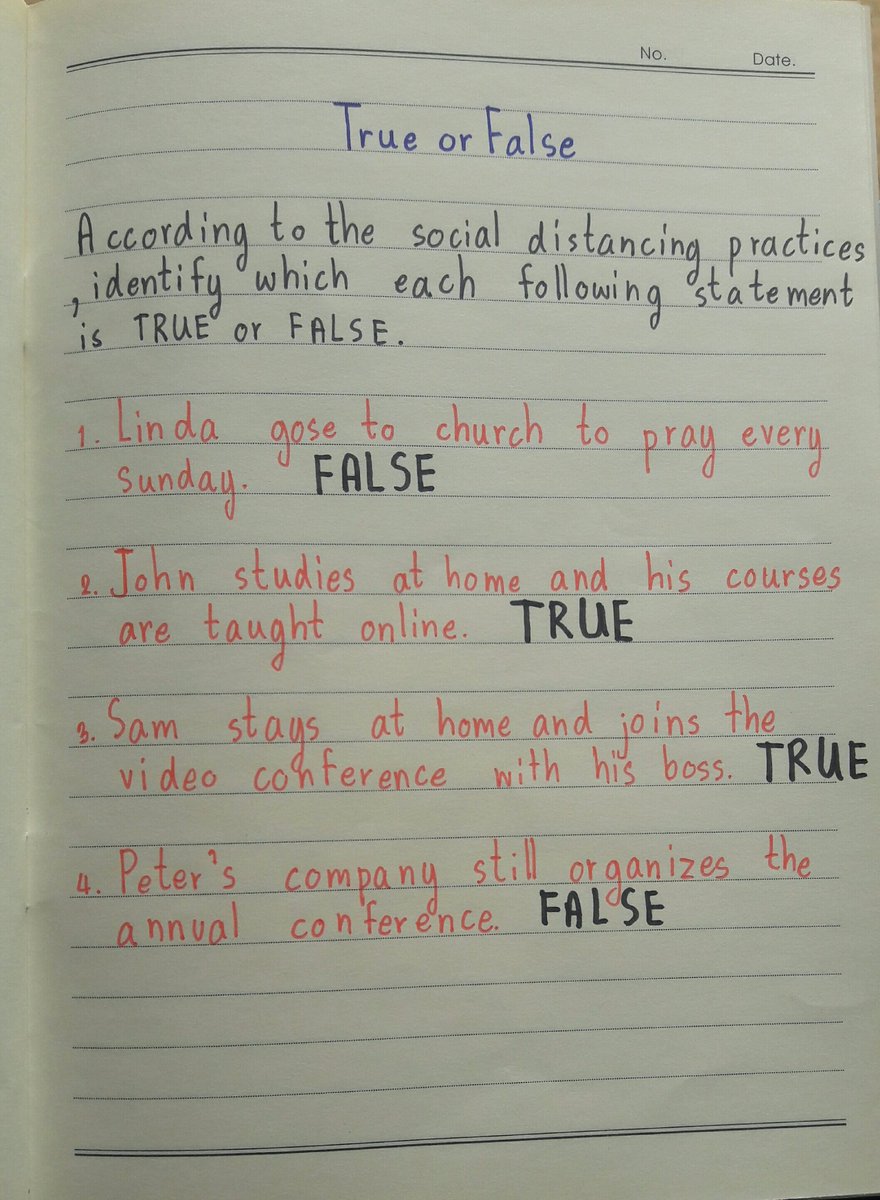 No. Date.
True or False
According to the social distancing practices
, identify which each following statement
is TRUE or FALSE.
1. Linda gose to church to pray every
sunday. FALSE
2. John studies at home and his courses
are taught online. TRUE
3. Sam stays at home and joins the
video conference with his boss. TRUE
4. Peter's company still organizes the
annual conference. FALSE